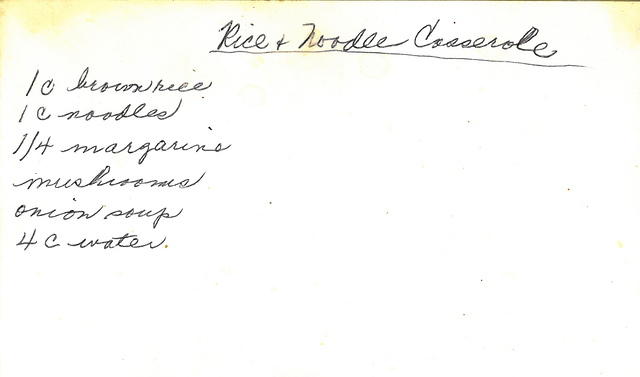 Rice + Noodle Casserole
1 c brown rice
1 c noodles
1/4 margarine
mushrooms
onion soup
4 c water.